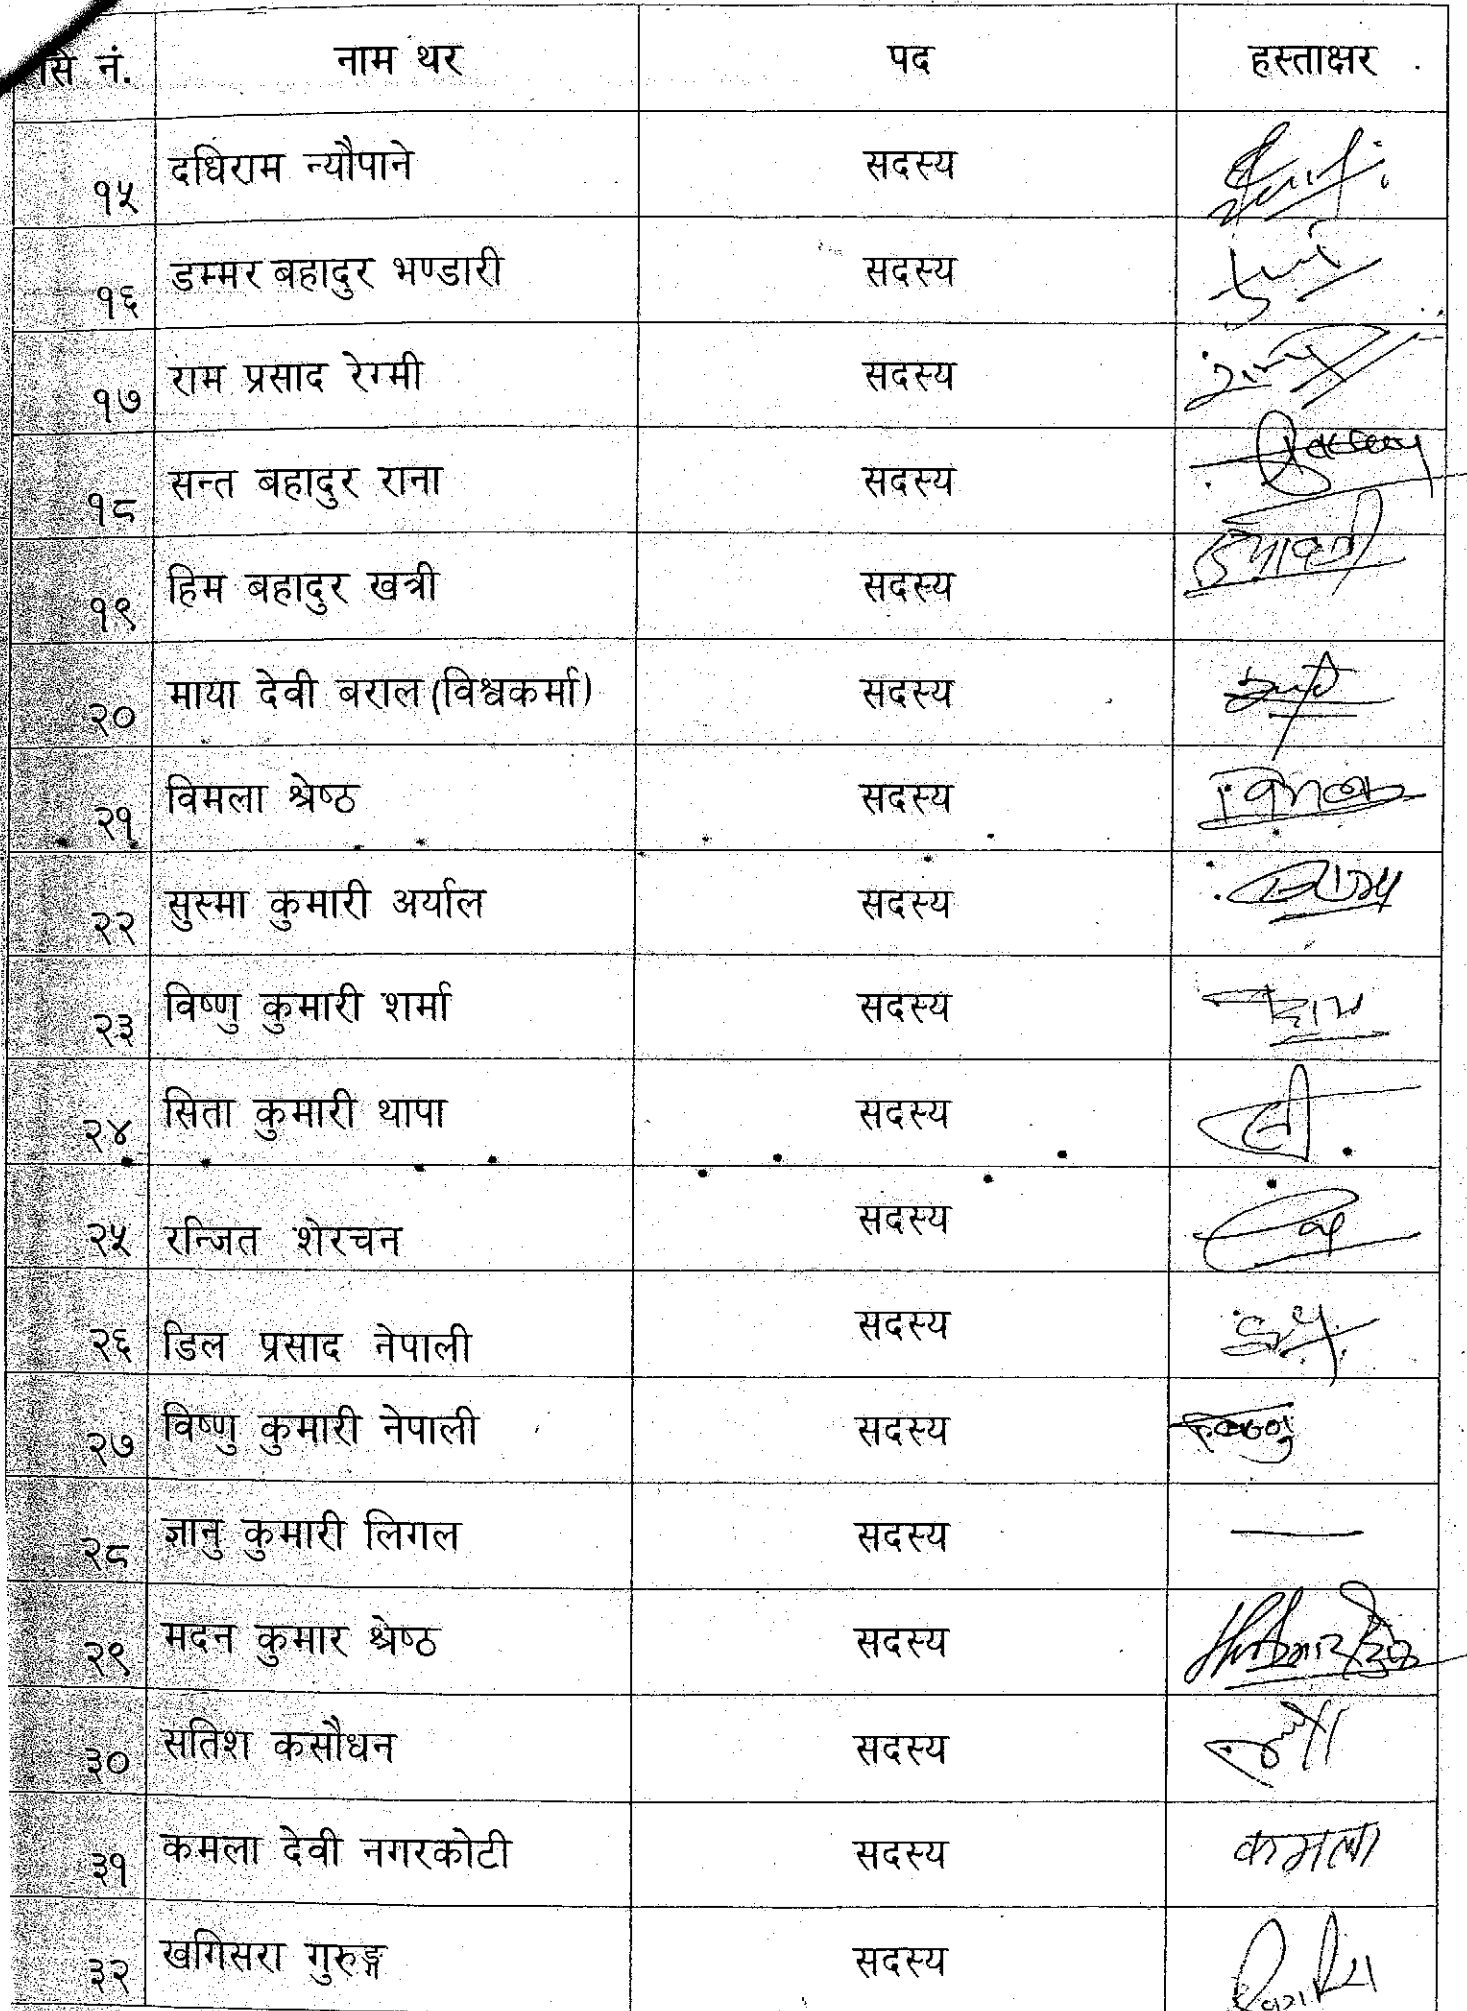 सि नं. नाम थर पद हस्ताक्षर
१५ दधिराम न्यौपाने सदस्य
१६ डम्मर बहादुर भण्डारी सदस्य
१७ राम प्रसाद रेग्मी सदस्य
१८ सन्त बहादुर राना सदस्य
१९ हिम बहादुर खत्री सदस्य
२० माया देवी बराल (विश्वकर्मा) सदस्य
२१ विमला श्रेष्ठ सदस्य
२२ सुस्मा कुमारी अर्याल सदस्य
२३ विष्णु कुमारी शर्मा सदस्य
२४ सिता कुमारी थापा सदस्य
२५ रन्जित शेरचन सदस्य
२६ डिल प्रसाद नेपाली सदस्य
२७ विष्णु कुमारी नेपाली सदस्य विष्णु
२८ ज्ञानु कुमारी लिगल सदस्य —
२९ मदन कुमार श्रेष्ठ सदस्य
३० सतिश कसौधन सदस्य
३१ कमला देवी नगरकोटी सदस्य कमला
३२ खगिसरा गुरुङ्ग सदस्य